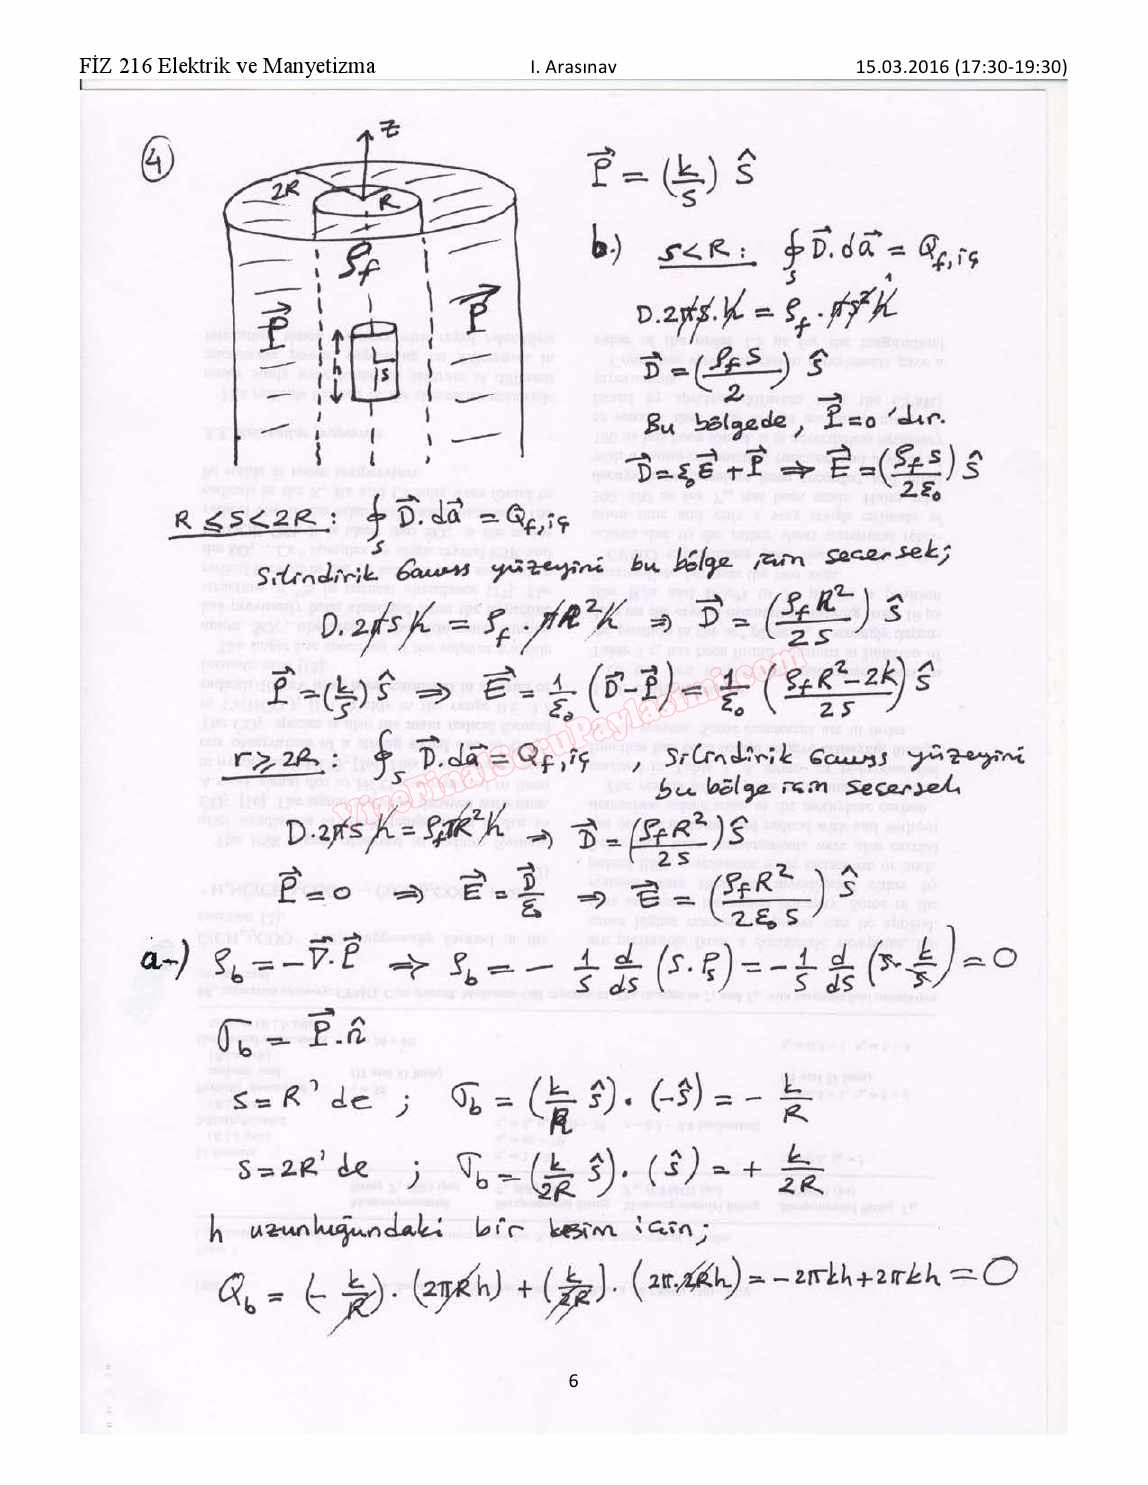 FİZ 216 Elektrik ve Manyetizma I. Arasınav 15.03.2016 (17:30-19:30)
4
z
2R
R
ρf
P⃗
P⃗
h
s
P⃗ = (k/s) ŝ
b.) s<R: ∮s D⃗.da⃗ = Qf,iç
D.2πs.h = ρf.πs²h
D⃗ = (ρf s/2) ŝ
Bu bölgede, P⃗=0 'dır.
D⃗=ε₀E⃗+P⃗ ⇒ E⃗=(ρf s/2ε₀) ŝ
R≤s<2R: ∮s D⃗.da⃗ = Qf,iç
Silindirik Gauss yüzeyini bu bölge için seçersek;
D.2πsh = ρf.πR²h ⇒ D⃗ = (ρf R²/2s) ŝ
P⃗=(k/s) ŝ ⇒ E⃗=1/ε₀ (D⃗-P⃗) = 1/ε₀ (ρf R²-2k/2s) ŝ
r≥2R: ∮s D⃗.da⃗=Qf,iç , Silindirik Gauss yüzeyini
bu bölge için seçersek
D.2πsh=ρfπR²h ⇒ D⃗=(ρf R²/2s) ŝ
P⃗=0 ⇒ E⃗=D⃗/ε₀ ⇒ E⃗=(ρf R²/2ε₀s) ŝ
VizeFinalSoruPaylasimi.com
a-) ρb=-∇⃗.P⃗ ⇒ ρb=- 1/s d/ds (s.Ps)=-1/s d/ds (s.k/s)=0
σb = P⃗.n̂
s=R'de ; σb = (k/R ŝ).(-ŝ)= - k/R
s=2R'de ; σb=(k/2R ŝ).(ŝ)=+ k/2R
h uzunluğundaki bir kesim için;
Qb = (-k/R).(2πRh)+(k/2R).(2π.2Rh)=-2πkh+2πkh=0
6